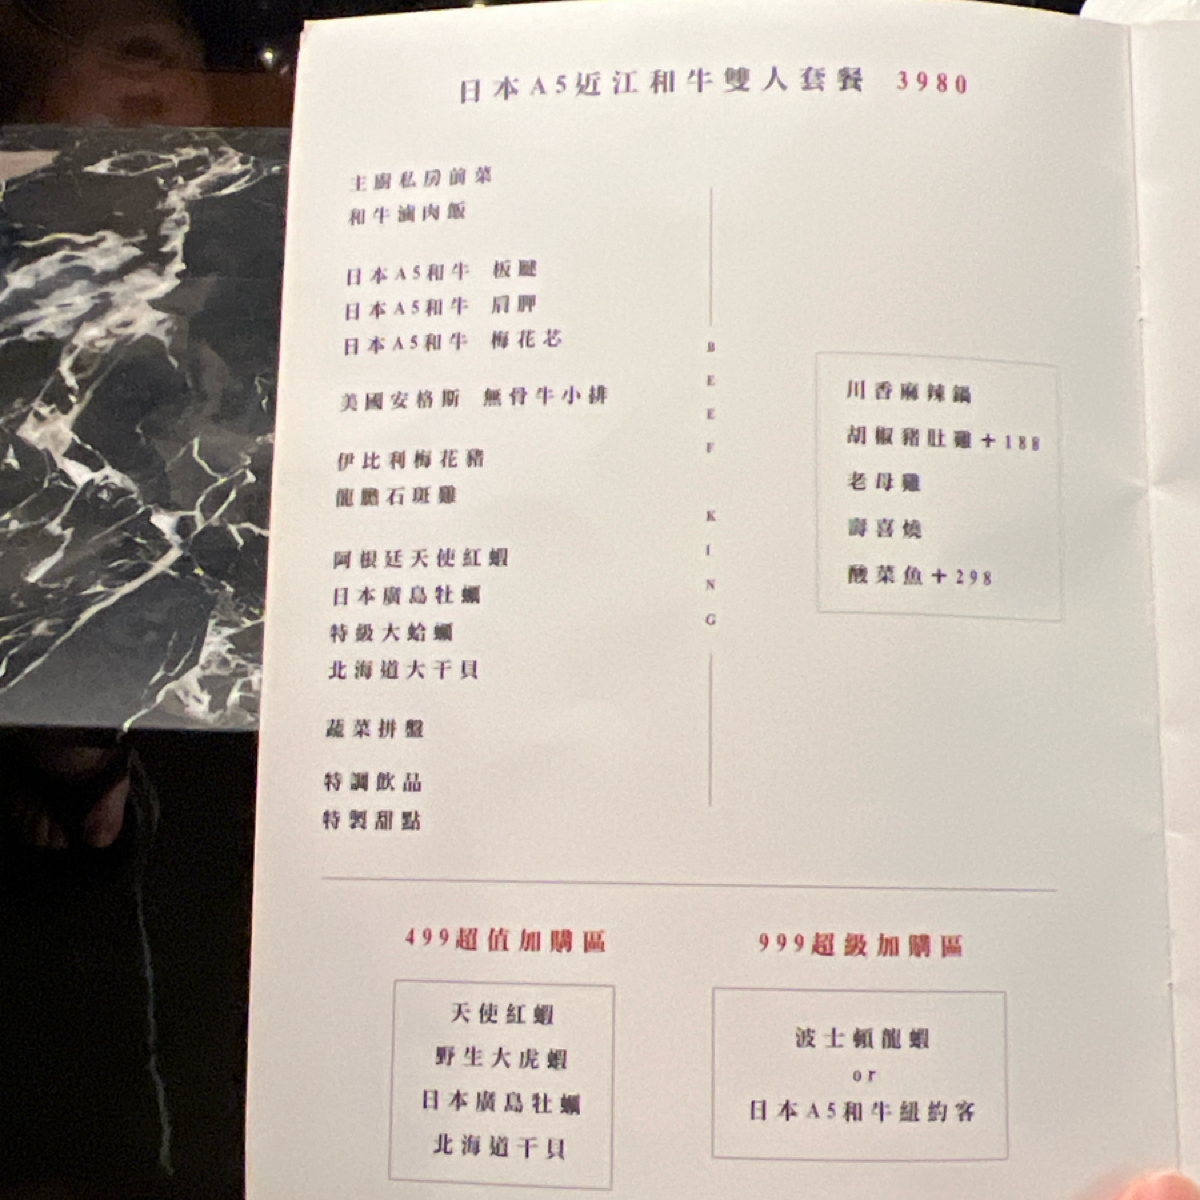 日本A5近江和牛雙人套餐 3980
主廚私房前菜
和牛滷肉飯
日本A5和牛 板腱
日本A5和牛 肩胛
日本A5和牛 梅花芯
美國安格斯 無骨牛小排
伊比利梅花豬
龍膽石斑雞
阿根廷天使紅蝦
日本廣島牡蠣
特級大蛤蠣
北海道大干貝
蔬菜拼盤
特調飲品
特製甜點
BEEF KING
川香麻辣鍋
胡椒豬肚雞+188
老母雞
壽喜燒
酸菜魚+298
499超值加購區
天使紅蝦
野生大虎蝦
日本廣島牡蠣
北海道干貝
999超級加購區
波士頓龍蝦
or
日本A5和牛紐約客